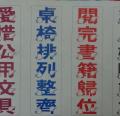 開完書籍歸位
桌椅排列整齊
愛惜公用文具